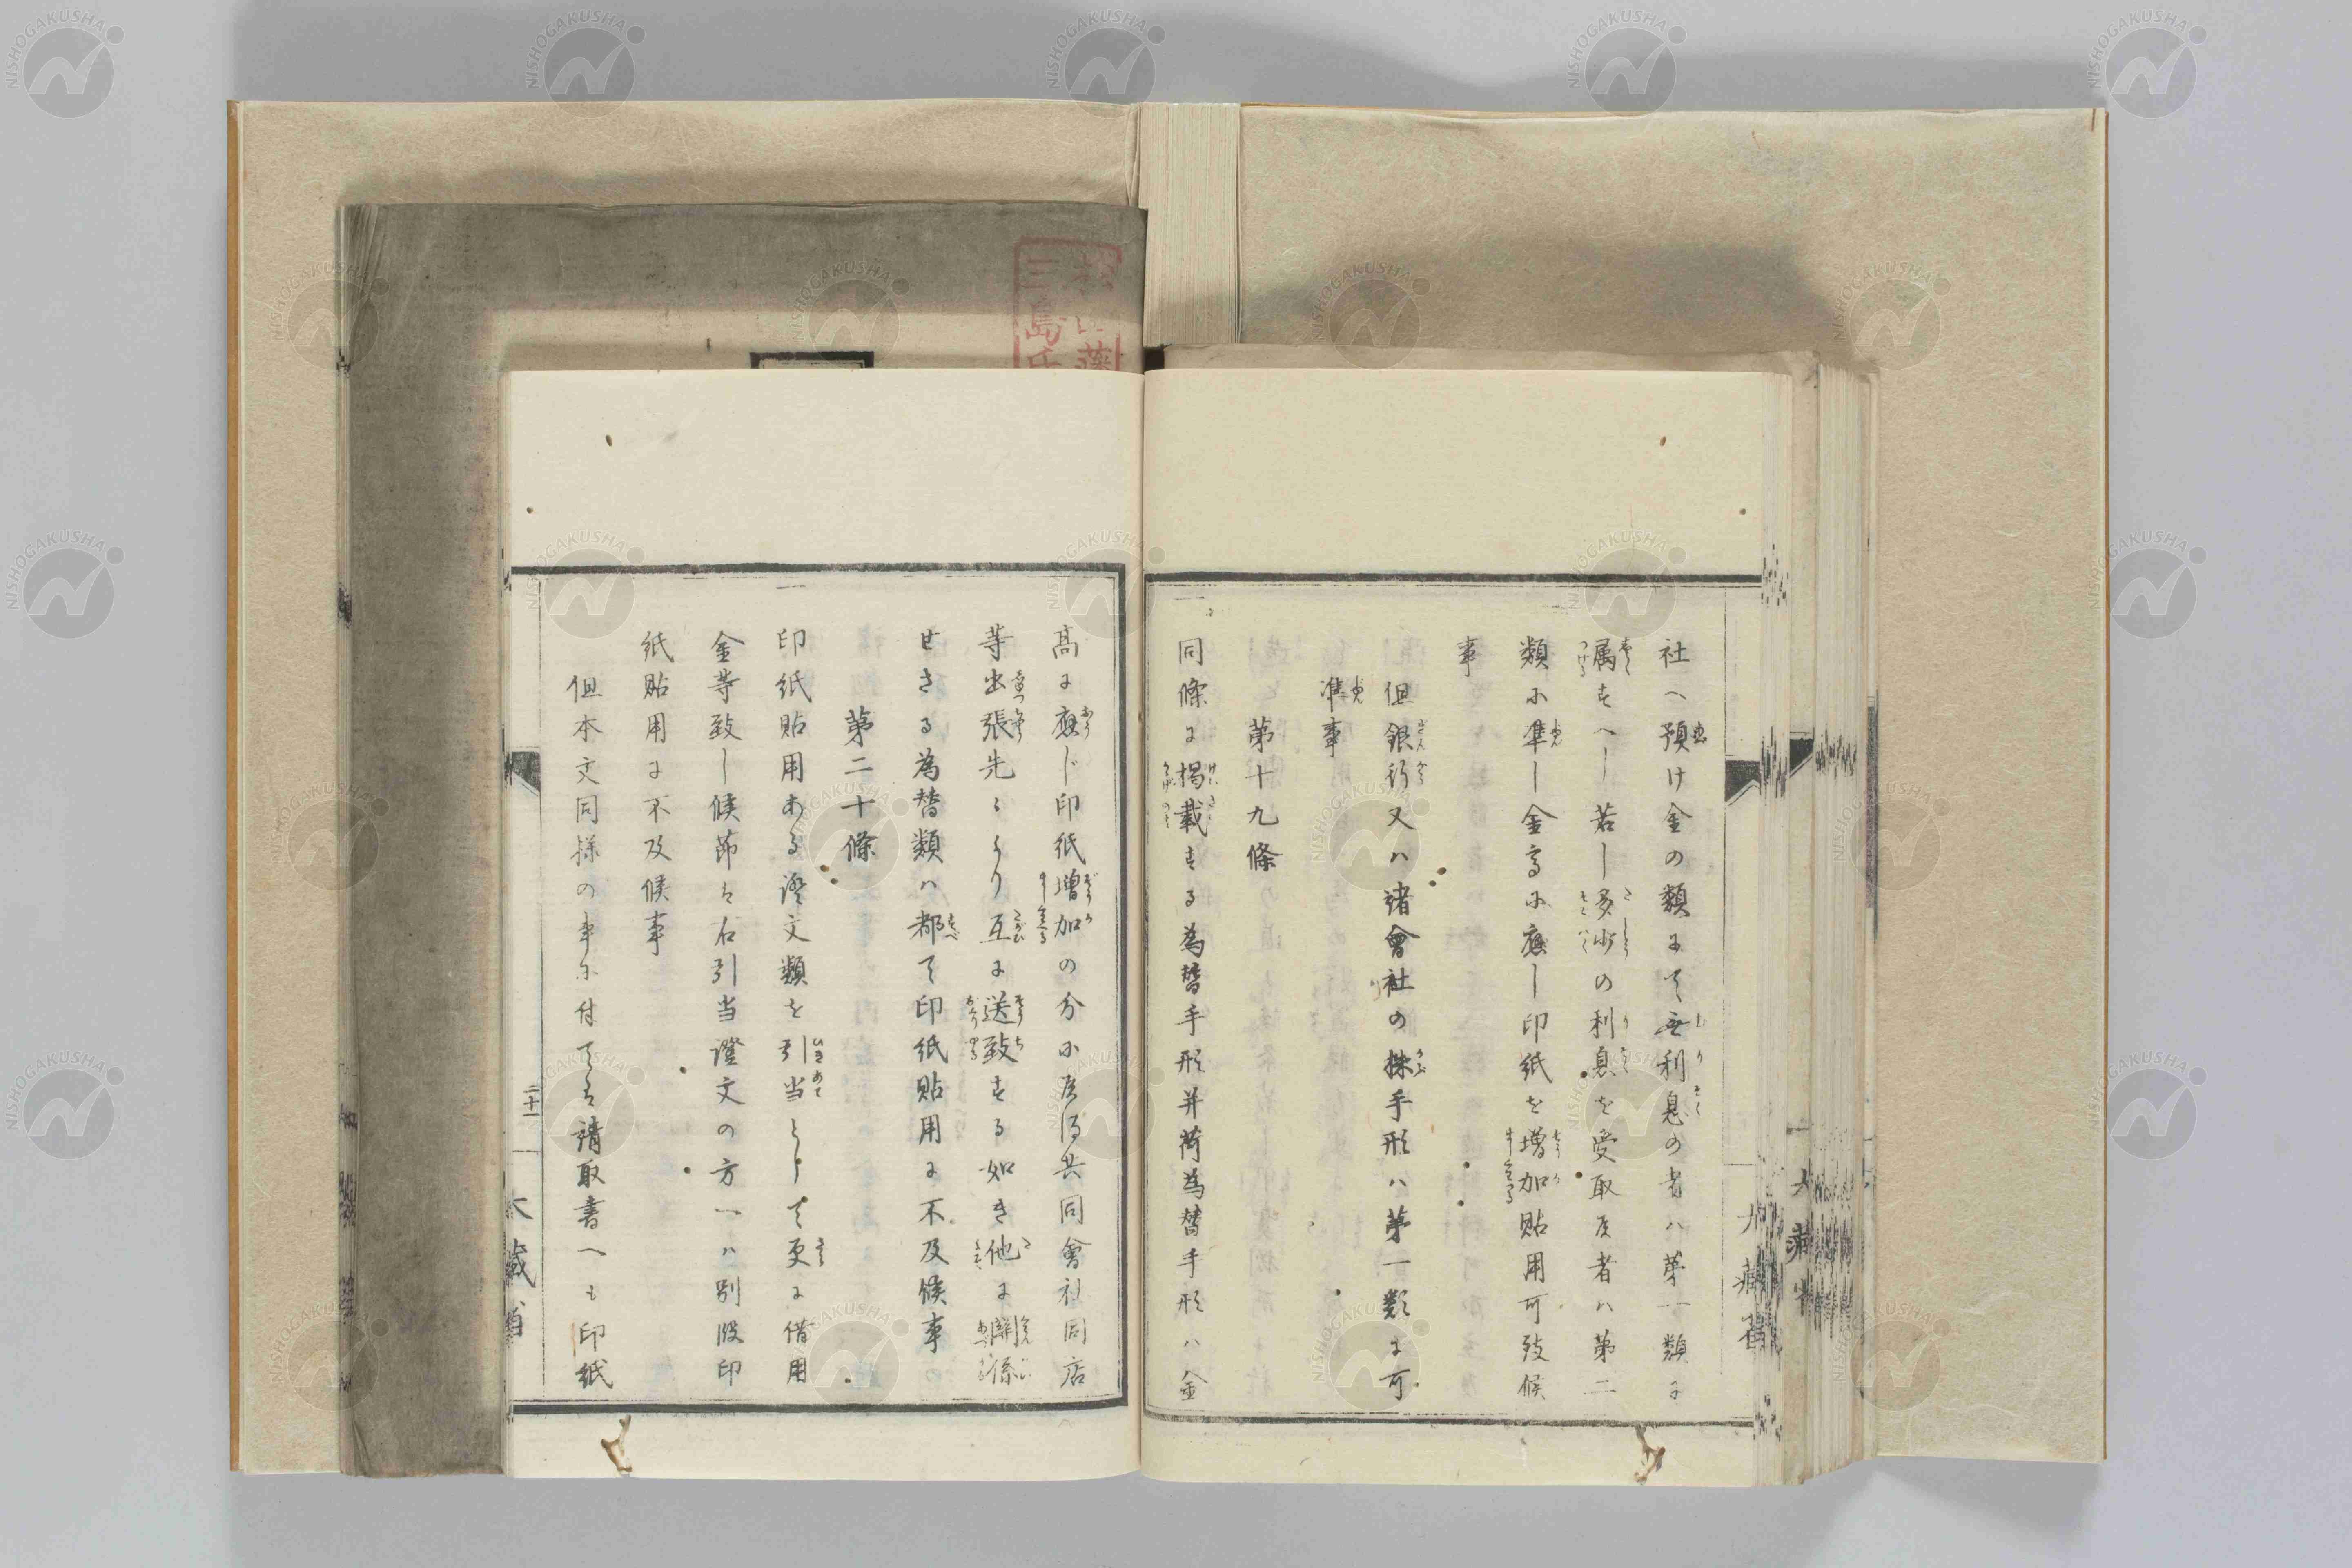 社へ預け金の類にて無利息の者ハ第一類に
属すへし若し多少の利息を受取候者ハ第二
類に準し金高に應し印紙を増加貼用可致候
事
但銀行又ハ諸會社の株手形ハ第一類に可
準事
第十九條
同條に掲載する為替手形并荷為替手形ハ金
高に應じ印紙増加の分に候得共同會社同店
等出張先より互に送致する如き他に關係
せさる為替類ハ都て印紙貼用に不及候事
第二十條
印紙貼用ある證文類を引当として更に借用
金等致し候節は右引当證文の方へハ別段印
紙貼用に不及候事
但本文同様の事に付ては請取書へも印紙
二十一
大藏省